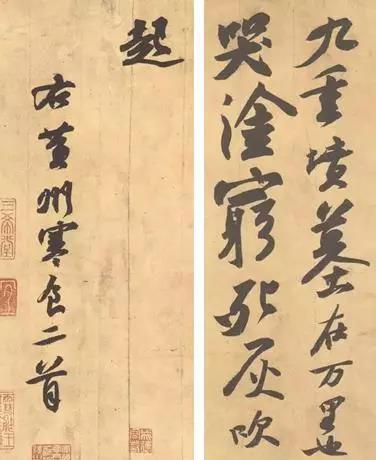 九重墳墓在万里也
哭塗窮死灰吹
起
右黃州寒食二首
三希堂